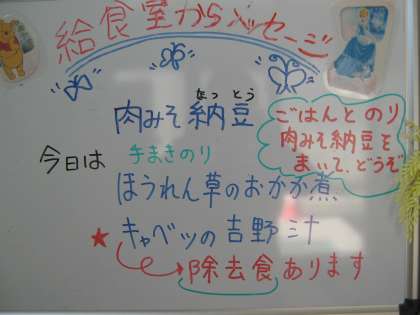 給食室からメッセージ
なっとう
肉みそ納豆
今日は
手まきのり
ほうれん草のおかか煮
★キャベツの吉野汁
除去食あります
ごはんとのり
肉みそ納豆を
まいて、どうぞ